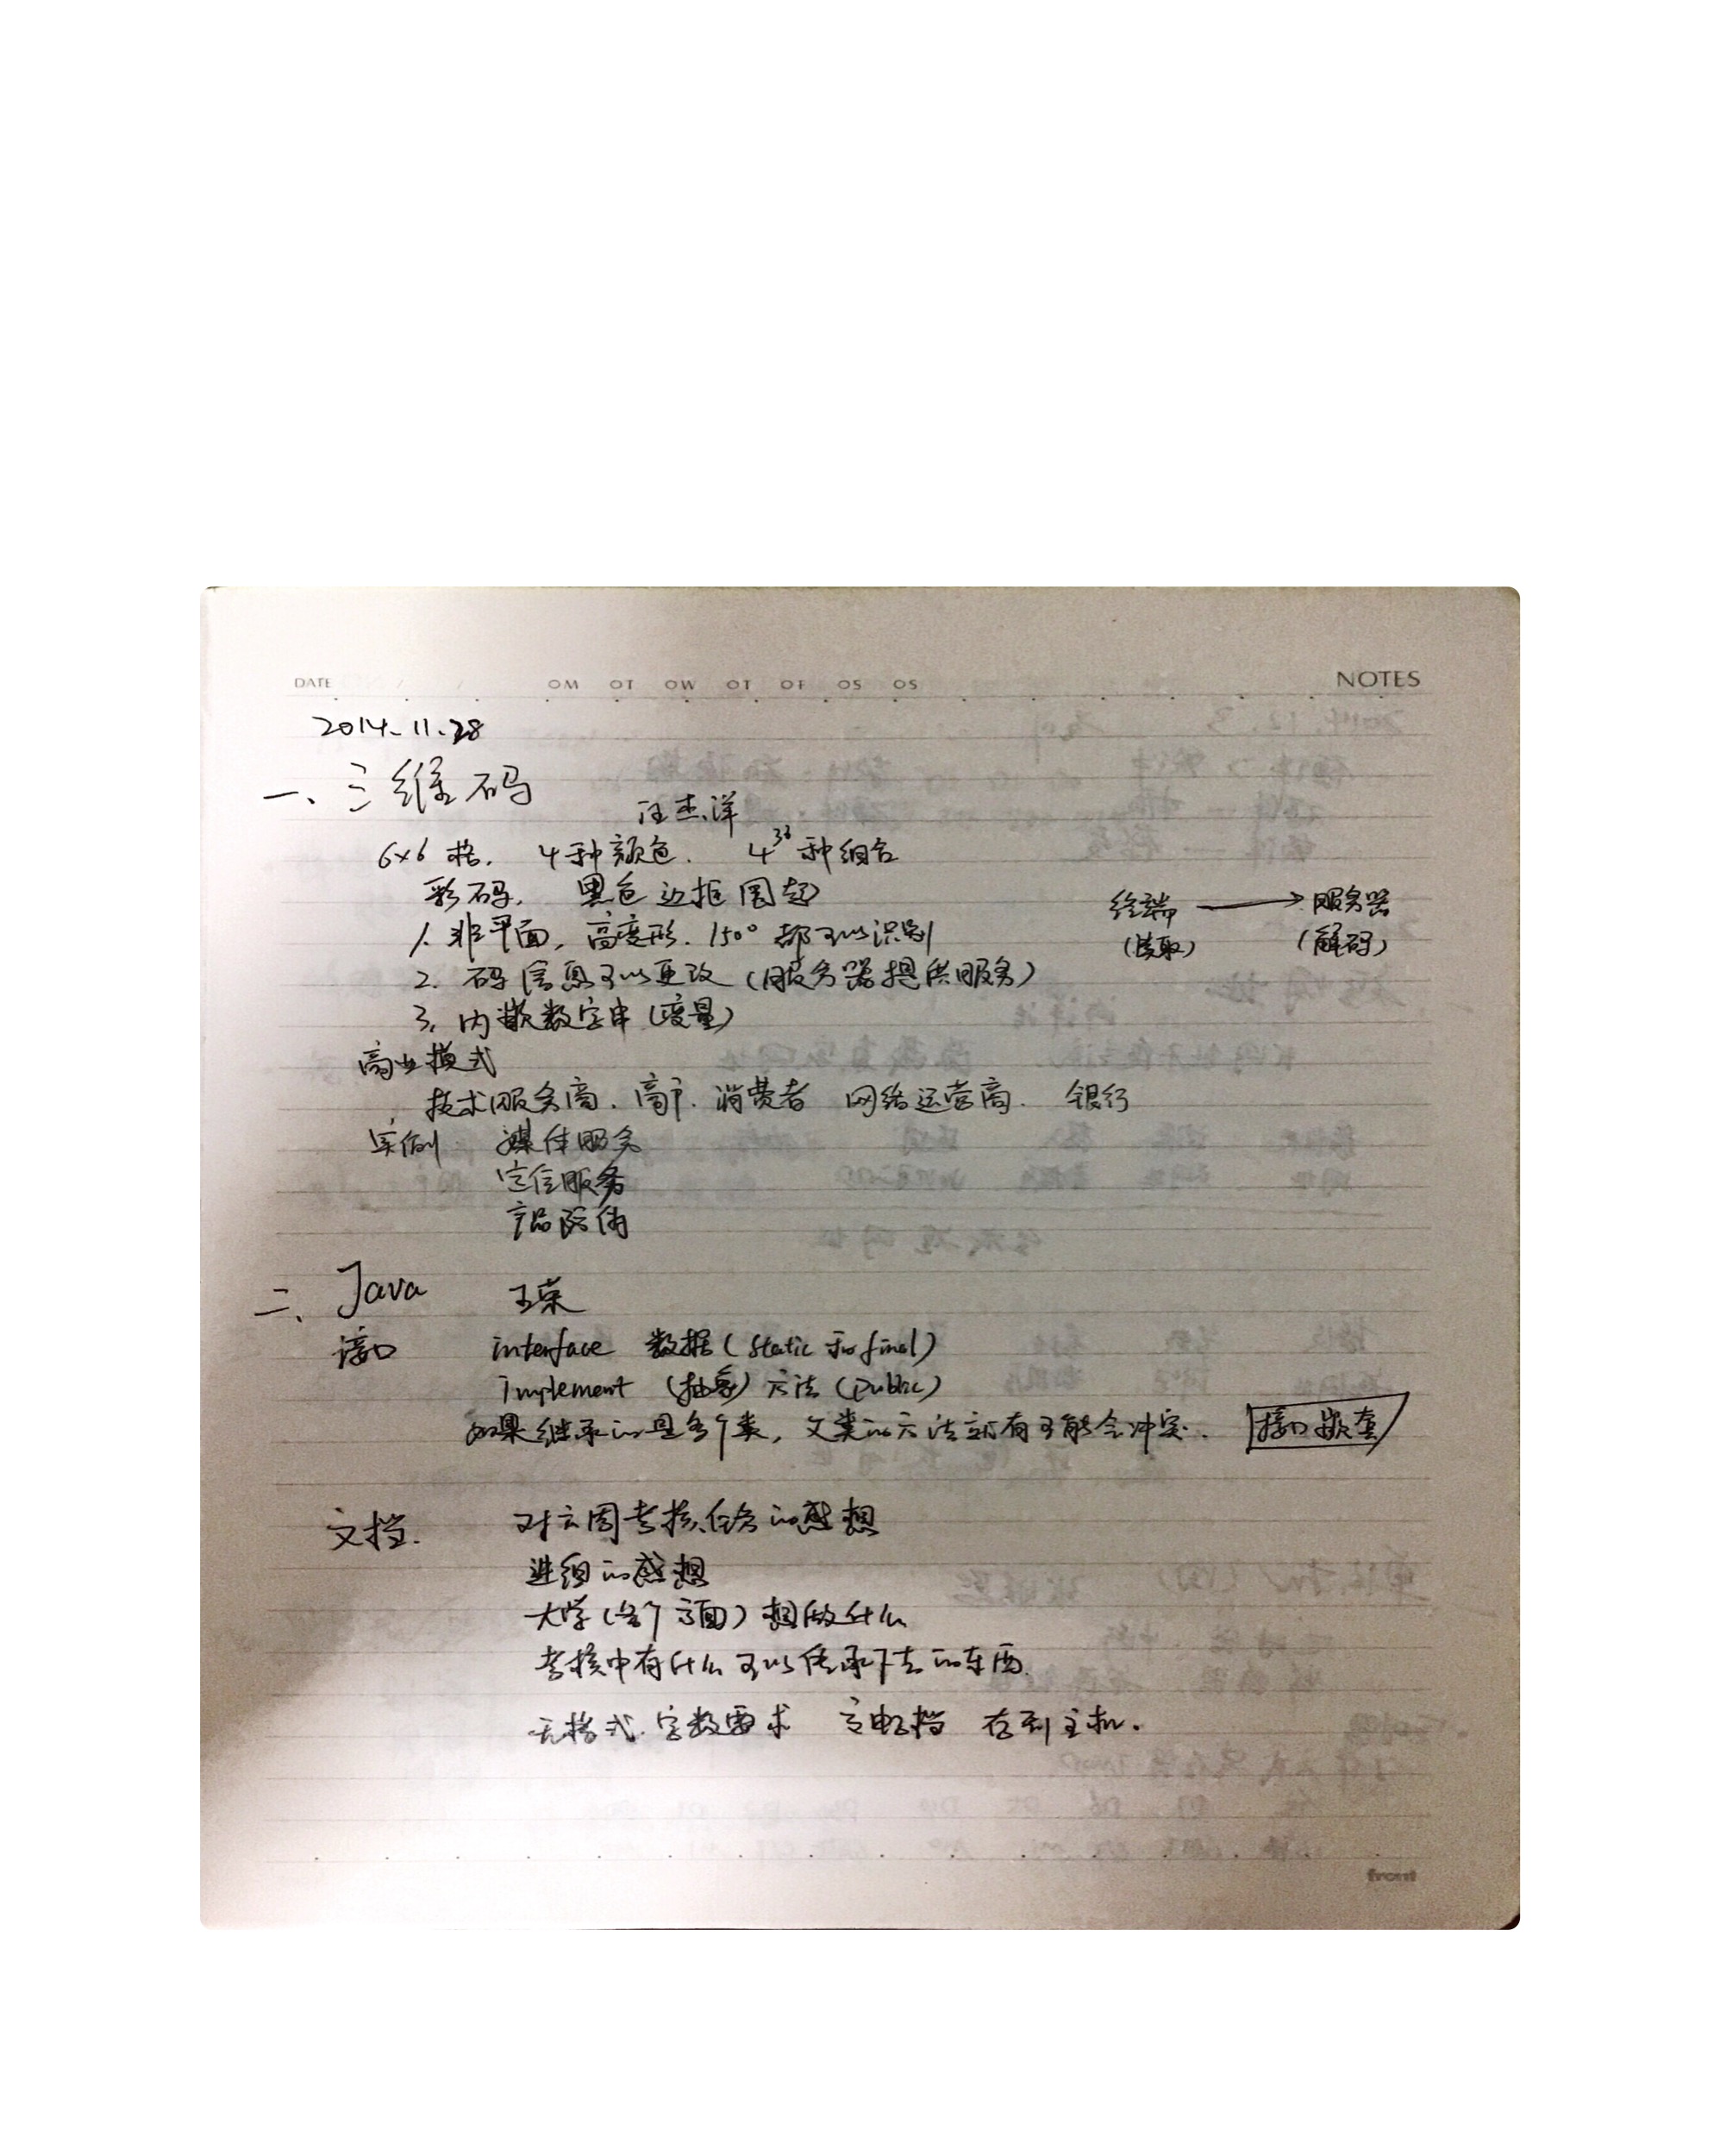 DATE OM OT OW OT OF OS OS NOTES
2014.11.28
一、三维码
汪杰洋
6×6格. 4种颜色. 4^36种组合
彩码, 黑色边框围起
终端 → 服务器
(读取) (解码)
1. 非平面, 高变形. 150°都可以识别
2. 码信息可以更改(服务器提供服务)
3. 内嵌数字串(度量)
商业模式
技术服务商. 商户. 消费者 网络运营商. 银行
实例 媒体服务
定位服务
产品防伪
二、Java 王荣
接口 interface 数据(static 和 final)
implement (抽象)方法(public)
如果继承的是多个类, 父类的方法就有可能会冲突. 接口嵌套
文档. 对六周考核任务的感想
进组的感想
大学(各个方面)想做什么
考核中有什么可以传承下去的东西.
无格式.字数要求 文档 存到主机.
front